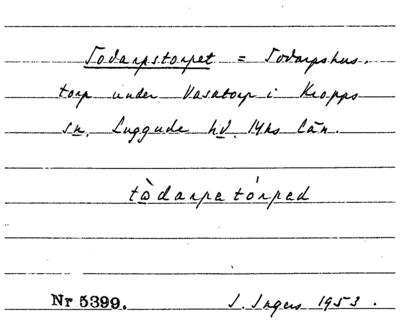 Todarpstorpet = Todarpshus.
torp under Vasatorp i Kropps
sn. Luggude hd. Mhs län.
tòdarpetórped
Nr 5399. I. Ingers 1953.